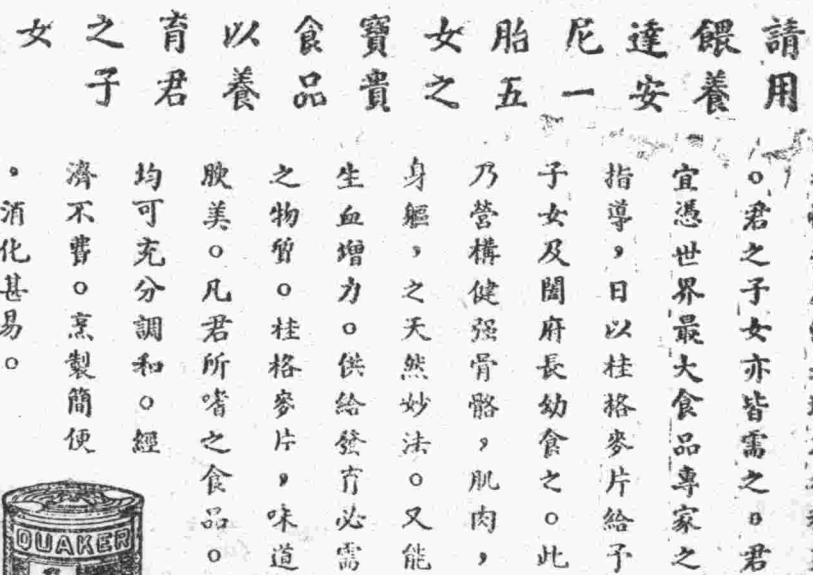 請用
餵養
達安
尼一
胎五
女之
寶貴
食品
以養
育君
之子
女
。君之子女亦皆需之。君
宜憑世界最大食品專家之
指導，日以桂格麥片給予
子女及闔府長幼食之。此
乃營構健强骨骼，肌肉，
身軀，之天然妙法。又能
生血增力。供給發育必需
之物質。桂格麥片，味道
腴美。凡君所嗜之食品。
均可充分調和。經
濟不費。烹製簡便
，消化甚易。
QUAKER